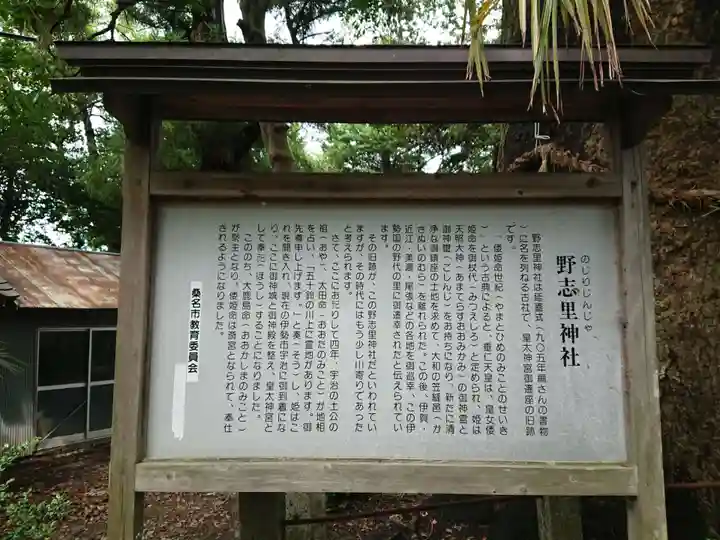 のじりじんじゃ
野志里神社
野志里神社は延喜式(九〇五年編さんの書物
)に名を列ねる古社で、皇太神宮御遷座の旧跡
です。
「倭姫命世紀(やまとひめのみことのせいき
)」という古典によると、垂仁天皇は、皇女倭
姫命を御杖代(みつえしろ)と定められ、姫は
天照大神(あまてらすおおみかみ)の御神霊と
御神鏡(ごしんじ)をお持ちになり、新たに清
浄な御鎮座の土地を求めて、大和の笠縫邑(か
さぬいのむら)を離れられた。この後、伊賀・
近江・美濃・尾張などの各地を御巡幸、この伊
勢国の野代の里に御遷幸されたと伝えられてい
ます。
その旧跡が、この野志里神社だといわれてい
ますが、その時代にはもう少し川寄りであった
と考えられます。
さて、ここにお足りして四年、宇治の土公の
祖(おや)、太田命(おおたのみこと)が地相
を占い、「五十鈴の川上に霊地があります。御
先導申し上げます。」と奏(そう)し、姫はこ
れを聞き入れ、現在の伊勢市宇治に御到着にな
り、ここに御神域と御神殿を整え、皇太神宮と
して奉祀(ほうし)することになりました。
こののち、大鹿島命(おおかしまのみこと)
が祭主となり、倭姫命は斎宮となられて、奉仕
されるようになりました。
桑名市教育委員会